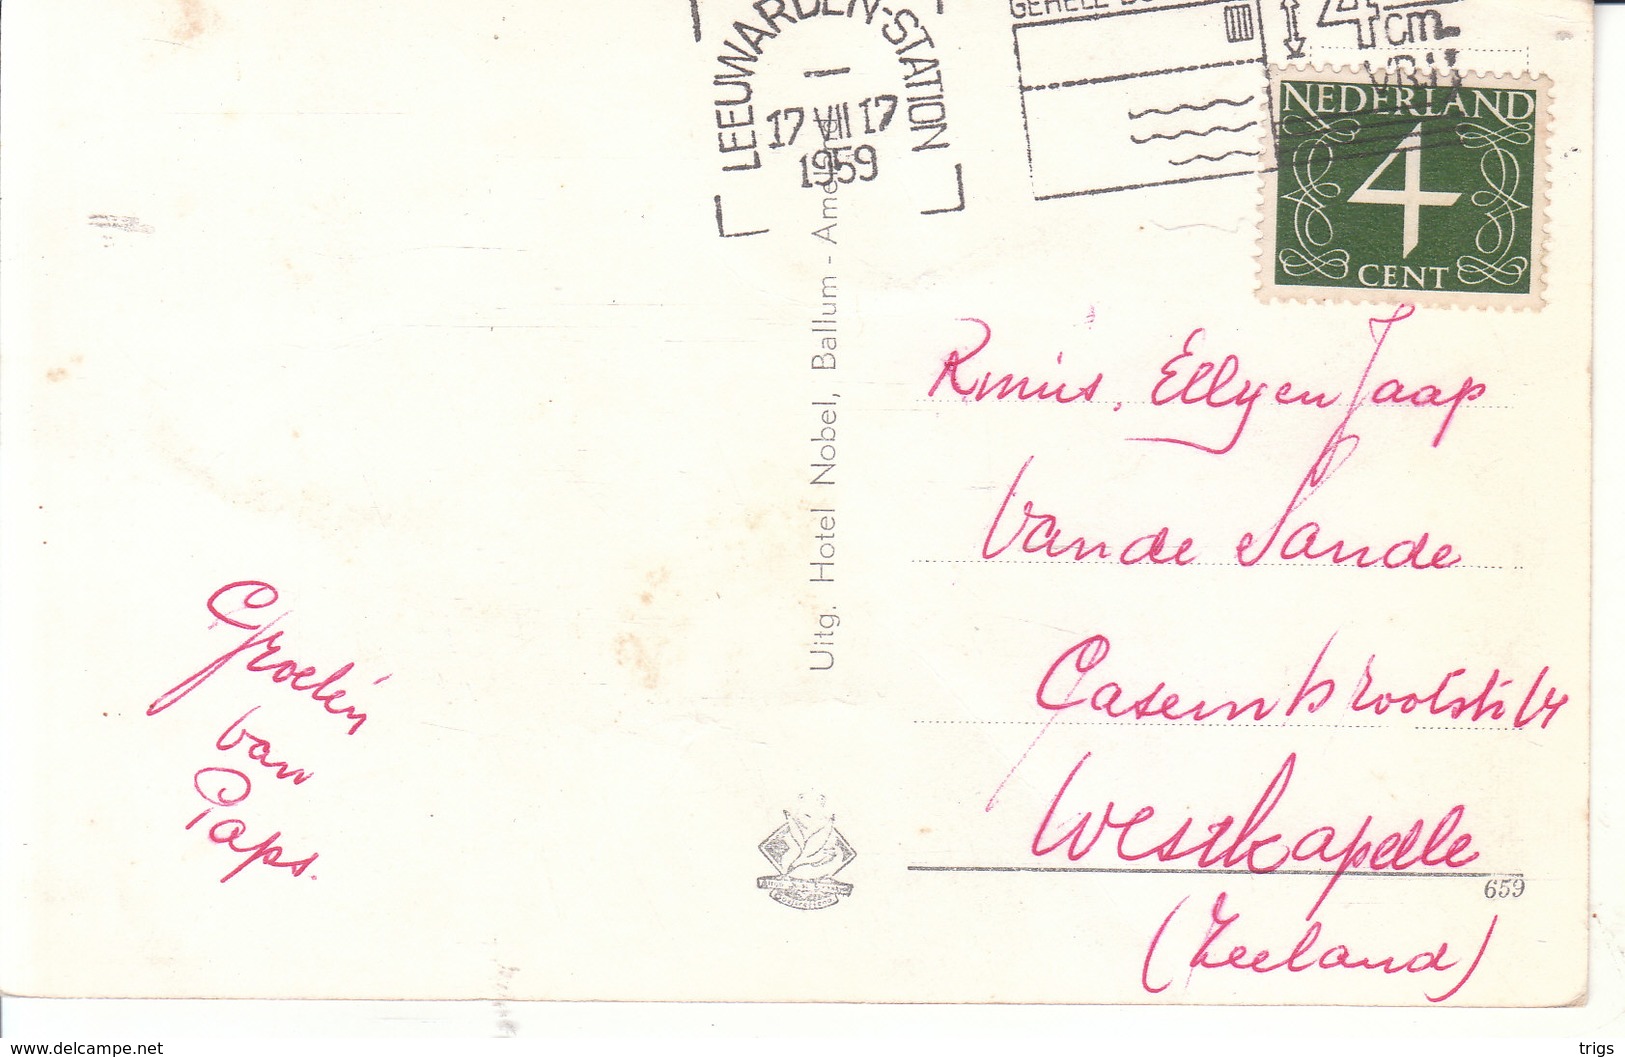 LEEUWARDEN-STATION
17 VII 17
1959
4 cm
VRIJ
NEDERLAND
4
CENT
Uitg. Hotel Nobel, Ballum - Ameland
Rinus, Elly en Jaap
Van de Sande
Casembrootstr 14
Westkapelle
(Zeeland)
659
Groeten
van
Paps.
delcampe.net
trigs